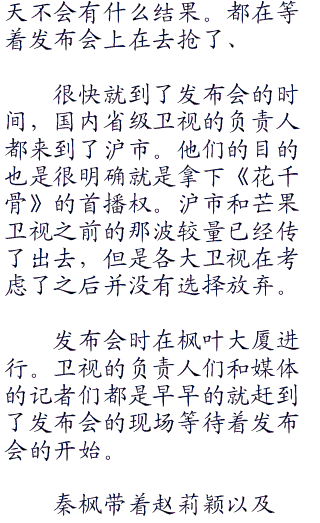 天不会有什么结果。都在等
着发布会上在去抢了、
很快就到了发布会的时
间，国内省级卫视的负责人
都来到了沪市。他们的目的
也是很明确就是拿下《花千
骨》的首播权。沪市和芒果
卫视之前的那波较量已经传
了出去，但是各大卫视在考
虑了之后并没有选择放弃。
发布会时在枫叶大厦进
行。卫视的负责人们和媒体
的记者们都是早早的就赶到
了发布会的现场等待着发布
会的开始。
秦枫带着赵莉颖以及